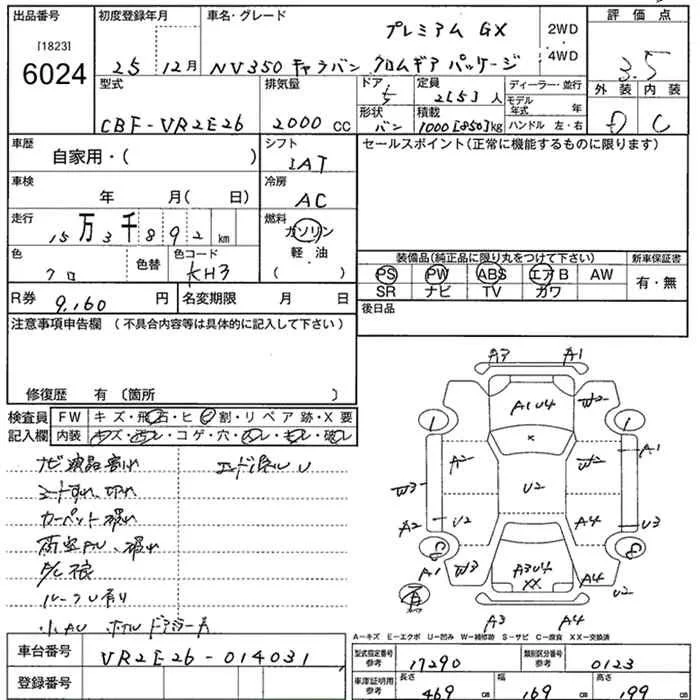 出品番号
[1823]
6024
初度登録年月
25 12月
車名・グレード
プレミアム GX
NV350 キャラバン クロムギア パッケージ
2WD
4WD
評価点
3.5
外装 内装
D C
型式
CBF-VR2E26
排気量
2000 cc
ドア
5
形状
バン
定員
2[5] 人
積載
1000[850]kg
ディーラー・並行
モデル年式 年
ハンドル 左・右
車歴
自家用・( )
シフト
IAT
車検
年 月( 日)
冷房
AC
走行
15万3千892 km
燃料
ガソリン
軽油
( )
色
クロ
色替
色コード
KH3
R券
9,160 円
名変期限 月 日
セールスポイント(正常に機能するものに限ります)
装備品(純正品に限り丸をつけて下さい)
新車保証書
PS PW ABS エアB AW
SR ナビ TV カワ
有・無
後日品
注意事項申告欄 (不具合内容等は具体的に記入して下さい)
修復歴 有 (箇所 )
検査員記入欄
FW キズ・飛石・ヒビ割・リペア跡・X要
内装 キズ・汚レ・コゲ・穴
ナビ液晶割れ
シートすれ、切れ
カーペット破れ
ルーフU有り
小AU ホイル ドアミラーA
A3 A1
A1U4
W2
A1
A2
W2
W3
U2
A2
U2
A4
U3
A1
W3
A3U4
XX
A4
U2
A3 A4
A−キズ E−エクボ U−凹み W−補修跡 S−サビ C−腐食 XX−交換済
車台番号
VR2E26-014031
登録番号
型式指定番号 参考
17290
類別区分番号 参考
0123
車庫証明用 参考
長さ
469 cm
幅
169 cm
高さ
199 cm